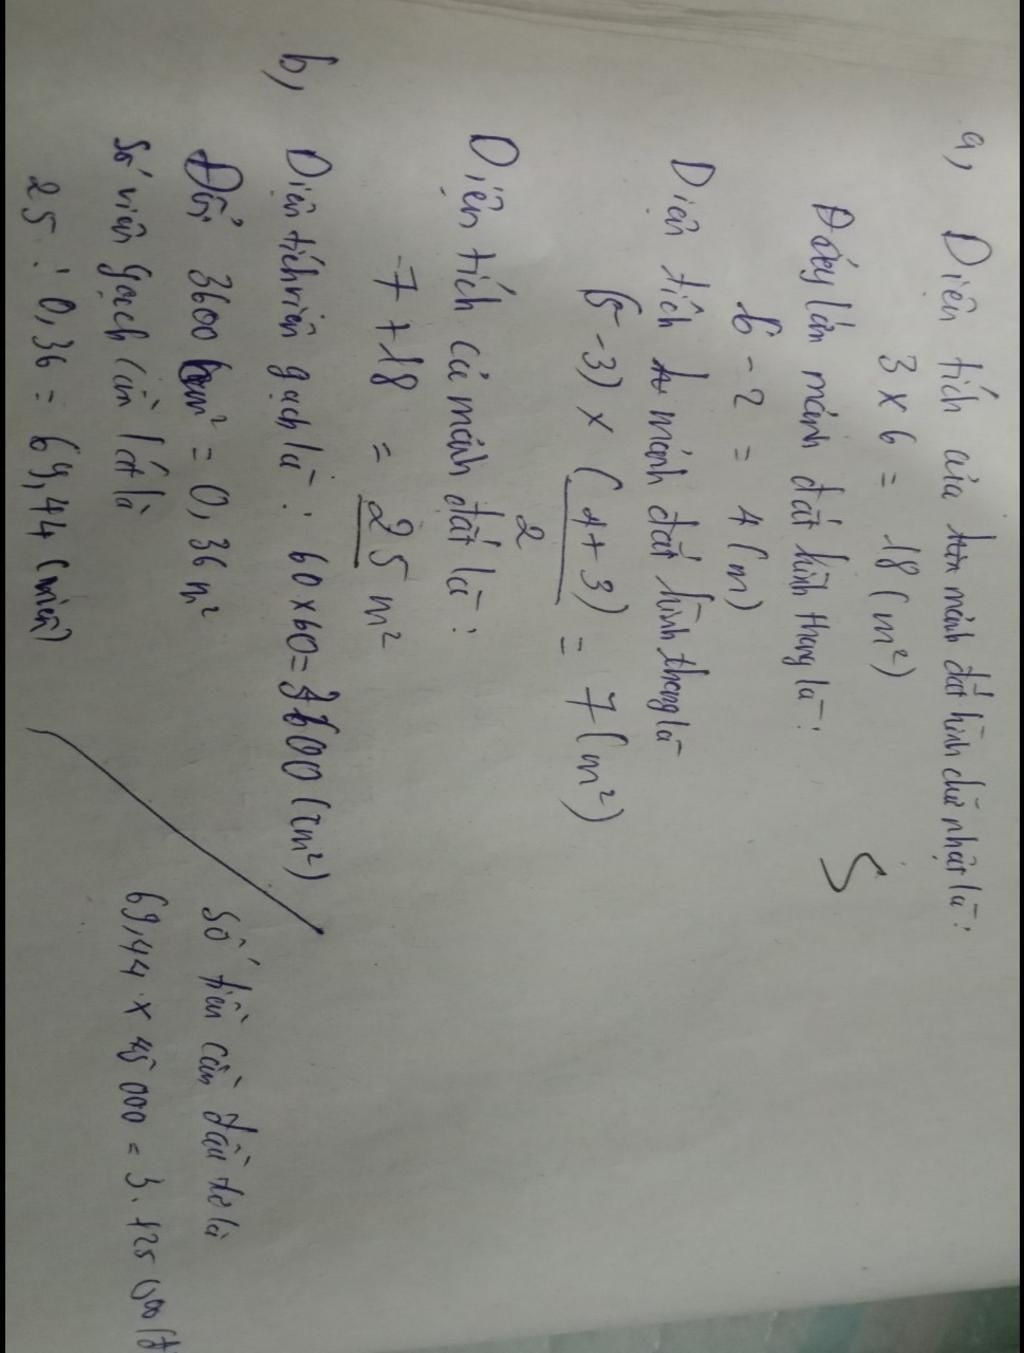 a, Diện tích của mảnh đất hình chữ nhật là:
3 x 6 = 18 (m²)
Đáy lớn mảnh đất hình thang là:
6 - 2 = 4 (m)
Diện tích mảnh đất hình thang là
(5-3) x (4+3) = 7 (m²)
2
Diện tích cả mảnh đất là:
7 + 18 = 25 m²
b, Diện tích viên gạch là: 60 x 60 = 3600 (cm²)
Đổi 3600 cm² = 0,36 m²
Số viên gạch cần lát là
25 : 0,36 = 69,44 (viên)
Số tiền cần đầu tư là
69,44 x 45 000 = 3.125 000 (đ